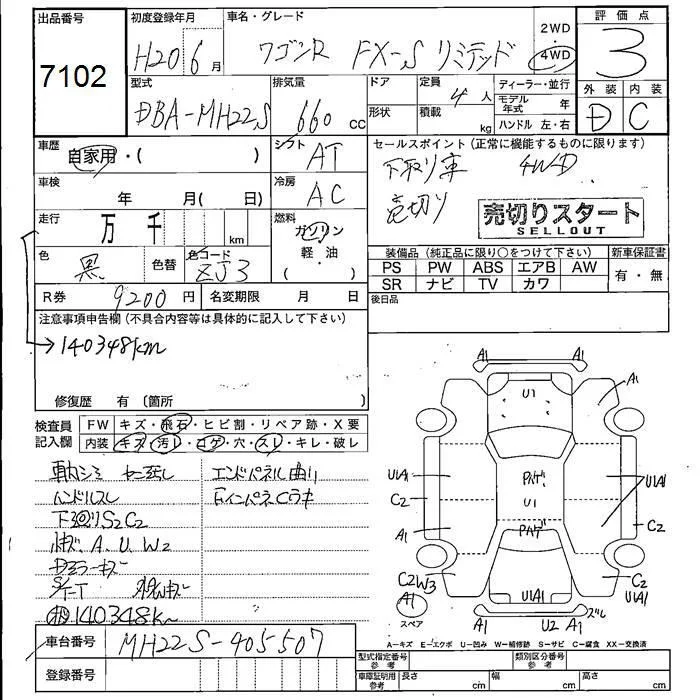 出品番号
7102
初度登録年月
H20 6月
車名・グレード
ワゴンR FX-S リミテッド
2WD
・
4WD
評価点
3
型式
DBA-MH22S
排気量
660 cc
ドア
形状
定員
4人
積載
kg
ディーラー・並行
モデル年式 年
ハンドル 左・右
外装 内装
D C
車歴
自家用・( )
シフト
AT
セールスポイント(正常に機能するものに限ります)
下取り車 4WD
売切り
売切りスタート
SELLOUT
車検
年 月( 日)
冷房
AC
走行
万 千
km
燃料
ガソリン
・
軽・油
( )
色
黒
色替
色コード
ZJ3
装備品(純正品に限り○をつけて下さい)
新車保証書
PS PW ABS エアB AW
SR ナビ TV カワ
有・無
R券 9200円
名変期限 月 日
後日品
注意事項申告欄(不具合内容等は具体的に記入して下さい)
→140348km
修復歴 有(箇所 )
検査員記入欄
FW キズ・飛石・ヒビ割・リペア跡・X要
内装 キズ・汚レ・コゲ・穴・スレ・キレ・破レ
エンドパネル曲り
ハンドルスレ
下回りS2C2
A.U.W2
140348k~
車台番号 MH22S-405507
登録番号
A1 A1
A1
U1
UIA1
C2
A1
Pハゲ
U1
Pハゲ
UIA1
C2
C2W3
A1
スペア
UIA1
C2
UIA1
A1 U2 A1 ズレ
A−キズ E−エクボ U−凹み W−補修跡 S−サビ C−腐食 XX−交換済
型式指定番号 参考
類別区分番号 参考
車庫証明用 参考
長さ cm
幅 cm
高さ cm